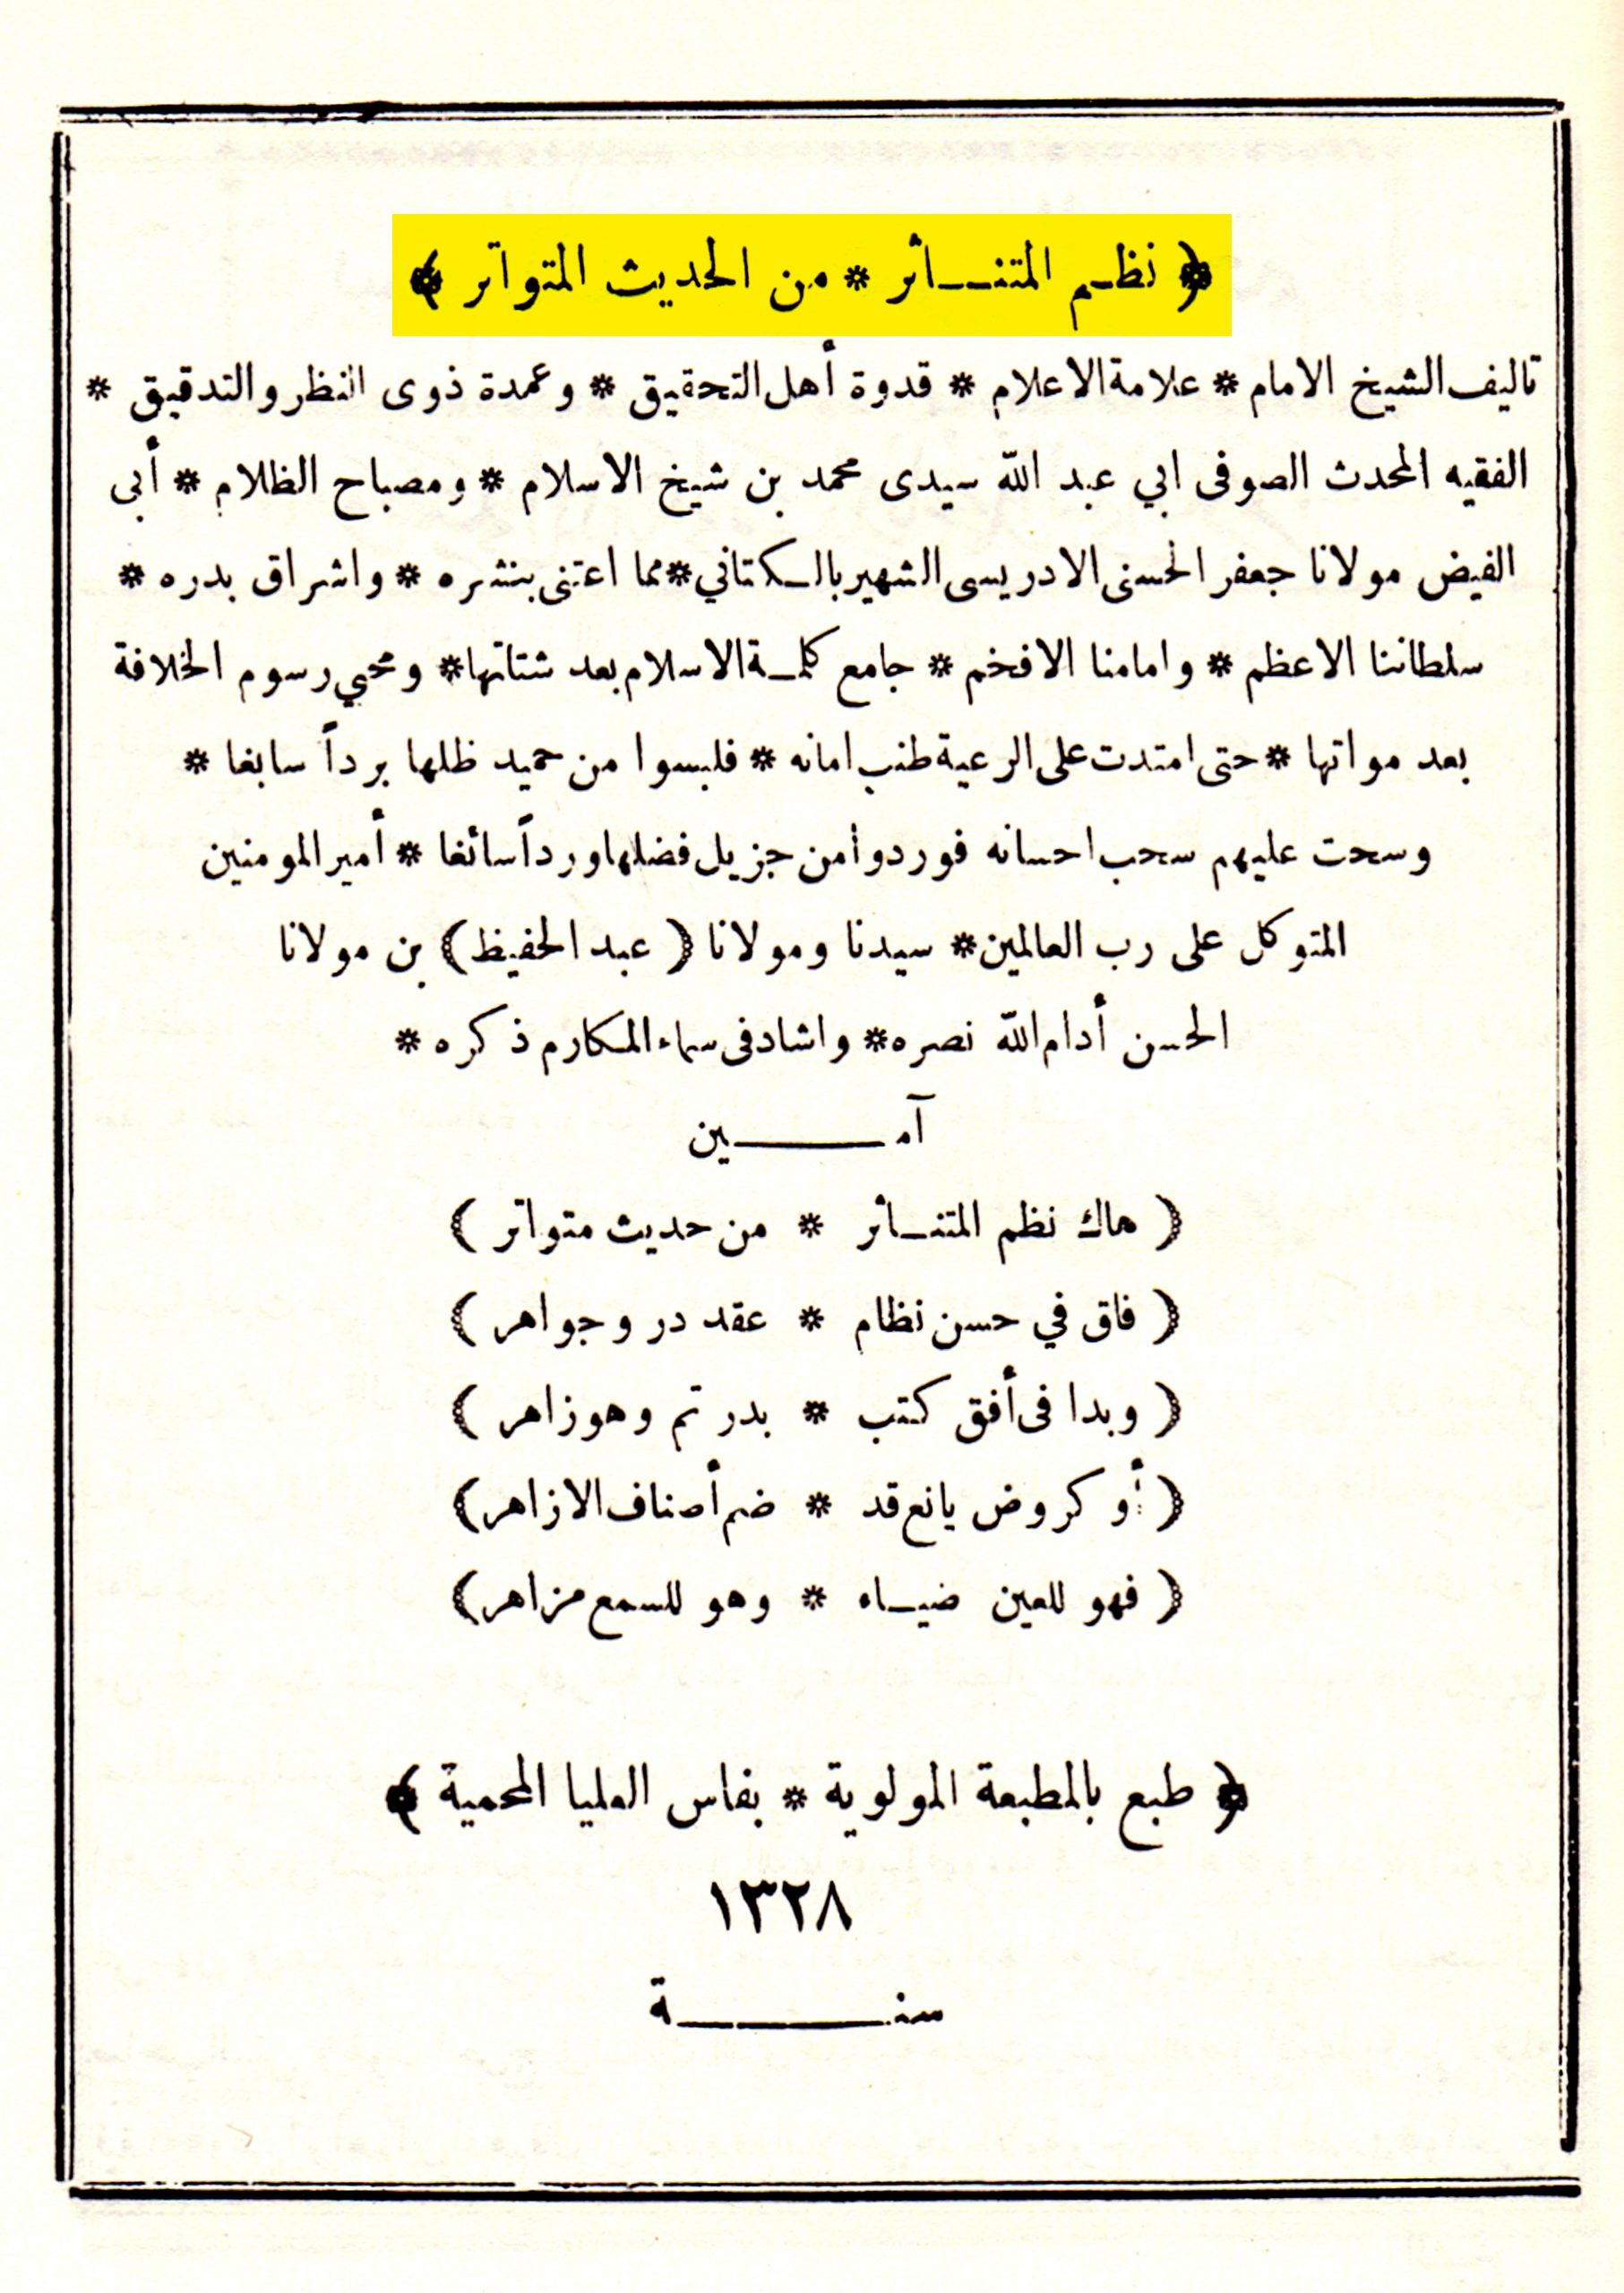 ﴿ نظم المتناثر * من الحديث المتواتر ﴾
تاليف الشيخ الامام * علامة الاعلام * قدوة أهل التحقيق * وعمدة ذوى النظر والتدقيق *
الفقيه المحدث الصوفى ابي عبد الله سيدى محمد بن شيخ الاسلام * ومصباح الظلام * أبى
الفيض مولانا جعفر الحسنى الادريسى الشهير بالكتاني * مما اعتنى بنشره * واشراق بدره *
سلطاننا الاعظم * وامامنا الافخم * جامع كلمة الاسلام بعد شتاتها * ومحيي رسوم الخلافة
بعد مواتها * حتى امتدت على الرعية طنب امانه * فلبسوا من حميد ظلها برداً سابغا *
وسحت عليهم سحب احسانه فوردوا من جزيل فضلها ورداً سائغا * أمير المومنين
المتوكل على رب العالمين * سيدنا ومولانا ( عبد الحفيظ ) بن مولانا
الحسن أدام الله نصره * واشاد فى سماء المكارم ذكره *
آمين
( هاك نظم المتناثر * من حديث متواتر )
( فاق في حسن نظام * عقد در وجواهر )
( وبدا فى أفق كتب * بدر تم وهو زاهر )
( أو كروض يانع قد * ضم أصناف الازاهر )
( فهو للعين ضياء * وهو للسمع مزاهر )
﴿ طبع بالمطبعة المولوية * بفاس العليا المحمية ﴾
١٣٢٨
سنة